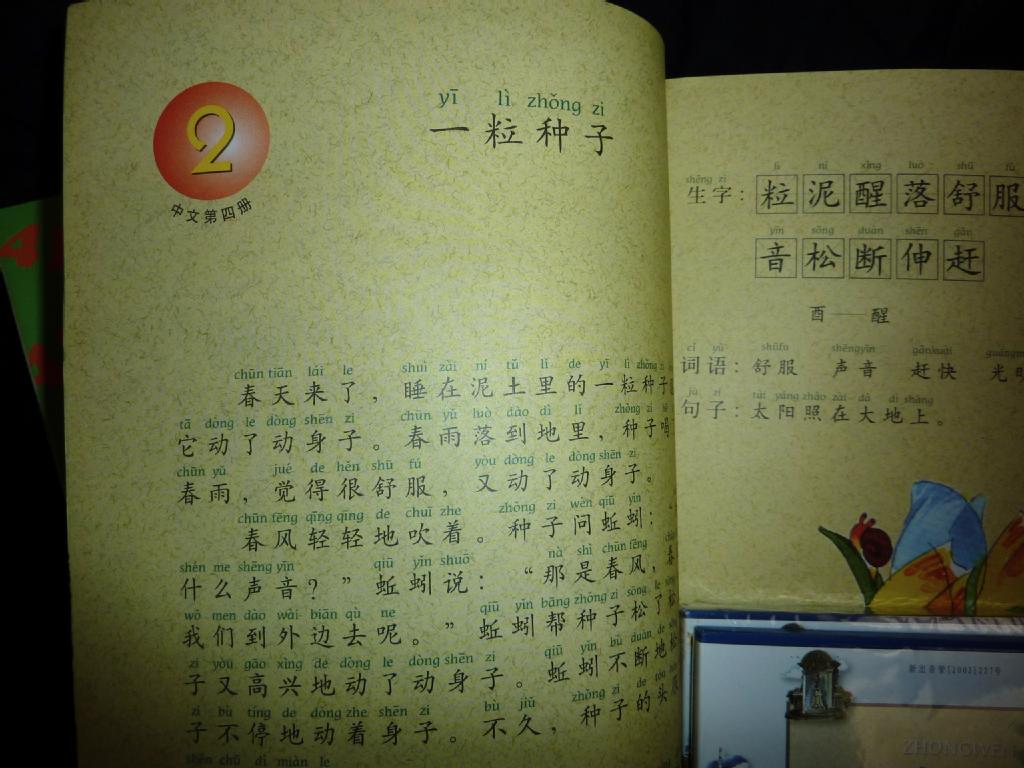 2
中文第四册
yī lì zhǒng zi
一粒种子
chūn tiān lái le shuì zài ní tǔ lǐ de yī lì zhǒng zi
春天来了，睡在泥土里的一粒种子
tā dòng le dòng shēn zi chūn yǔ luò dào dì lǐ zhǒng zi
它动了动身子。春雨落到地里，种子喝
chūn yǔ jué de hěn shū fú yòu dòng le dòng shēn zi
春雨，觉得很舒服，又动了动身子。
chūn fēng qīng qīng de chuī zhe zhǒng zi wèn qiū yǐn
春风轻轻地吹着。种子问蚯蚓：“
shén me shēng yīn qiū yǐn shuō nà shì chūn fēng
什么声音？”蚯蚓说：“那是春风，春
wǒ men dào wài biān qù ne qiū yǐn bāng zhǒng zi sōng le
我们到外边去呢。”蚯蚓帮种子松了松
zi yòu gāo xìng de dòng le dòng shēn zi qiū yǐn bù duàn de
子又高兴地动了动身子。蚯蚓不断地松
zi bù tíng de dòng zhe shēn zi bù jiǔ zhǒng zi de tóu
子不停地动着身子。不久，种子的头
shēn chū dì miàn le
shēng zì lì ní xǐng luò shū fú
生字：粒泥醒落舒服
yīn sōng duàn shēn gǎn
音松断伸赶
酉——醒
cí yǔ shūfu shēngyīn gǎnkuài guāngm
词语：舒服 声音 赶快 光明
jù zi tài yáng zhào zài dà dì shàng
句子：太阳照在大地上。
新出音管[2003]277号
ZHONGWEN